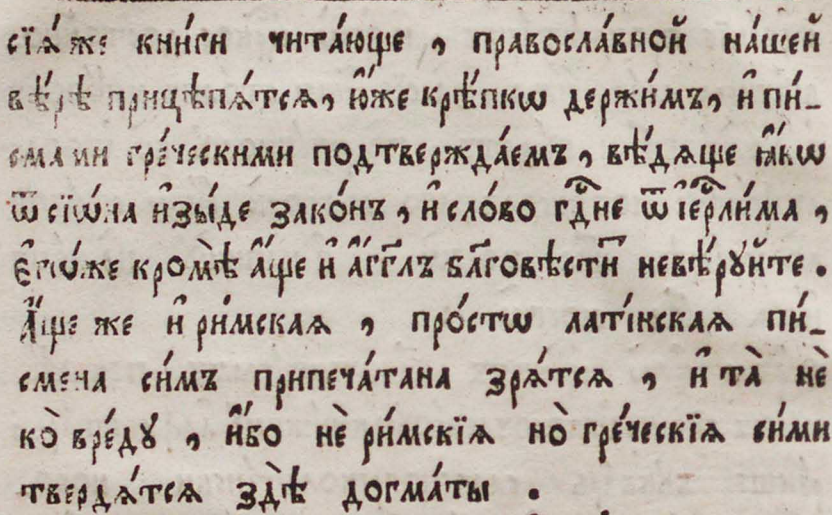 сїѧ́ же кни́ги чита́юще , правосла́вной на́шей
вѣ́рѣ прицѣпѧ́тсѧ, ю҆́же крѣ́пкѡ держи́мъ, и҆ пи_
смами гре́ческими подтвержда́емъ , вѣ́дѧще ꙗ҆́кѡ
ѿ сїѡ́на и҆зы́де зако́нъ , и҆ сло́во гдⷭ҇не ѿ і҆ерⷭ҇ли́ма ,
є҆гѡ́же кромѣ̀ а҆́ще и҆ а҆́гг҃лъ бл҃говѣсти́тъ невѣ́рꙋйте .
А҆́ще же и҆ ри́мскаѧ , про́стѡ лати́нскаѧ пи́_
смена си́мъ припеча́тана зрѧ́тсѧ , и҆ та̀ нѐ
ко̀ вре́дꙋ , и҆́бо нѐ ри́мскїѧ но̀ гре́ческїѧ си́ми
твердѧ́тсѧ здѣ̀ до́гматы .